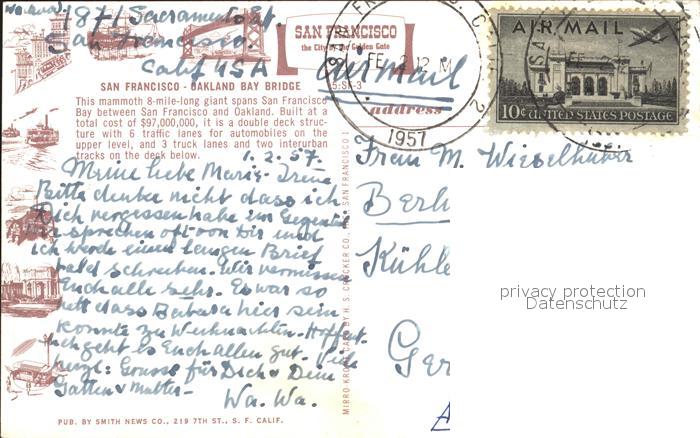 1871 Sacramento St.
San Francisco.
Calif USA
SAN FRANCISCO
the City by the Golden Gate
SAN FRANCISCO - OAKLAND BAY BRIDGE
This mammoth 8-mile-long giant spans San Francisco
Bay between San Francisco and Oakland. Built at a
total cost of $97,000,000, it is a double deck struc-
ture with 6 traffic lanes for automobiles on the
upper level, and 3 truck lanes and two interurban
tracks on the deck below.
1.2.57.
Meine liebe Marie-Irene
Bitte denke nicht dass ich
Dich vergessen habe im Gegenteil
wir sprechen oft von Dir und
ich werde einen langen Brief
bald schreiben. Wir vermissen
Euch alle sehr. Es war so
nett dass Barbara hier sein
konnte zu Weihnachten. Hoffent-
lich geht es Euch allen gut. Viele
herzl. Grüsse für Dich & Dein
Gatten & Mutter-
Wa. Wa.
PUB. BY SMITH NEWS CO., 219 7TH ST., S. F. CALIF.
MIRRO-KROME CARD BY H. S. CROCKER CO., INC., SAN FRANCISCO 1
air Mail
address
FE 2 12 M
1957
AIR MAIL
10¢ UNITED STATES POSTAGE
Frau M. Wieselhuber
Berl
Kühle
Ger
A
privacy protection
Datenschutz